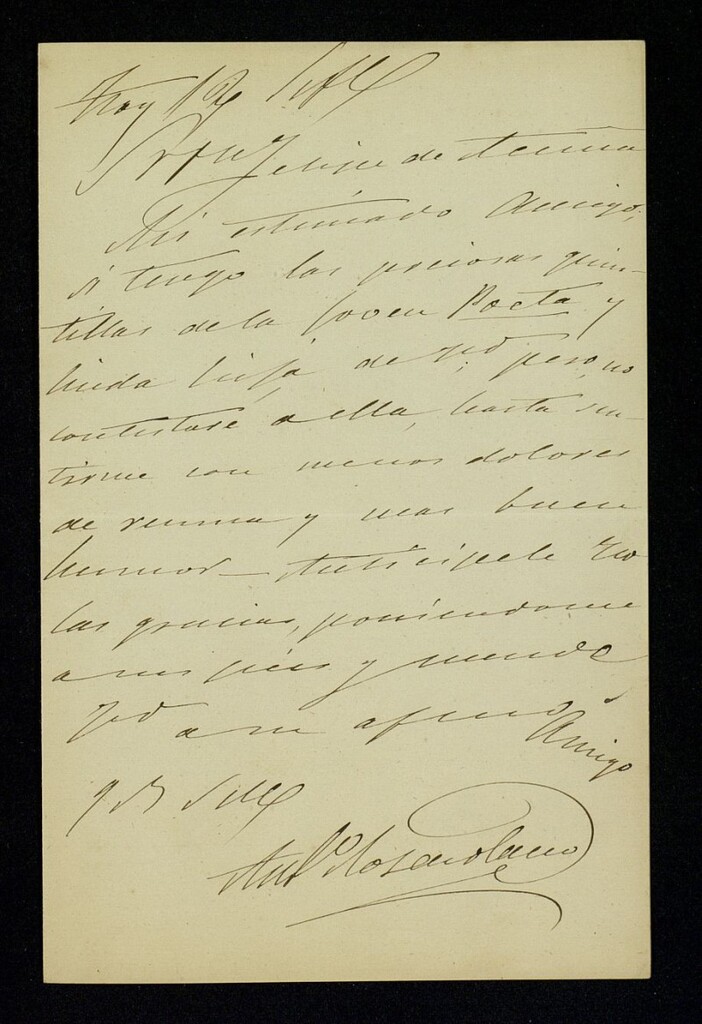 Hoy 19
Sr Dn Felipe de
Mi estimado Amigo,
si tengo las preciosas quin-
tillas de la joven Poeta y
linda hija de Vd, pero, no
contestaré a ella, hasta sen-
tirme con menos dolores
de reuma y mas buen
humor_ Anticipele Vd
las gracias, poniendome
a sus pies y mande
Vd a su afmo Amigo
q B S M
Anto Ros de Olano